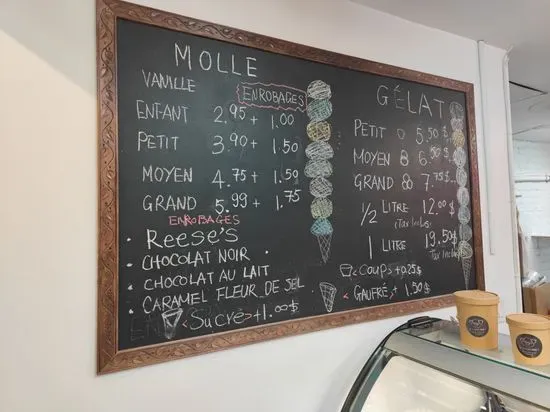 MOLLE
VANILLE
ENROBAGES
ENFANT 2.95 + 1.00
PETIT 3.90 + 1.50
MOYEN 4.75 + 1.50
GRAND 5.99 + 1.75
ENROBAGES
• REESE'S
• CHOCOLAT NOIR
• CHOCOLAT AU LAIT
• CARAMEL FLEUR DE SEL
Sucré + 1.00$
GÉLATO
PETIT 5.50$
MOYEN 6.50$
GRAND 7.75$
1/2 LITRE 12.00$
(Tax Inclus)
1 LITRE 19.50$
(Tax Inclus)
Coups + 0.25$
GAUFRÉ + 1.50$